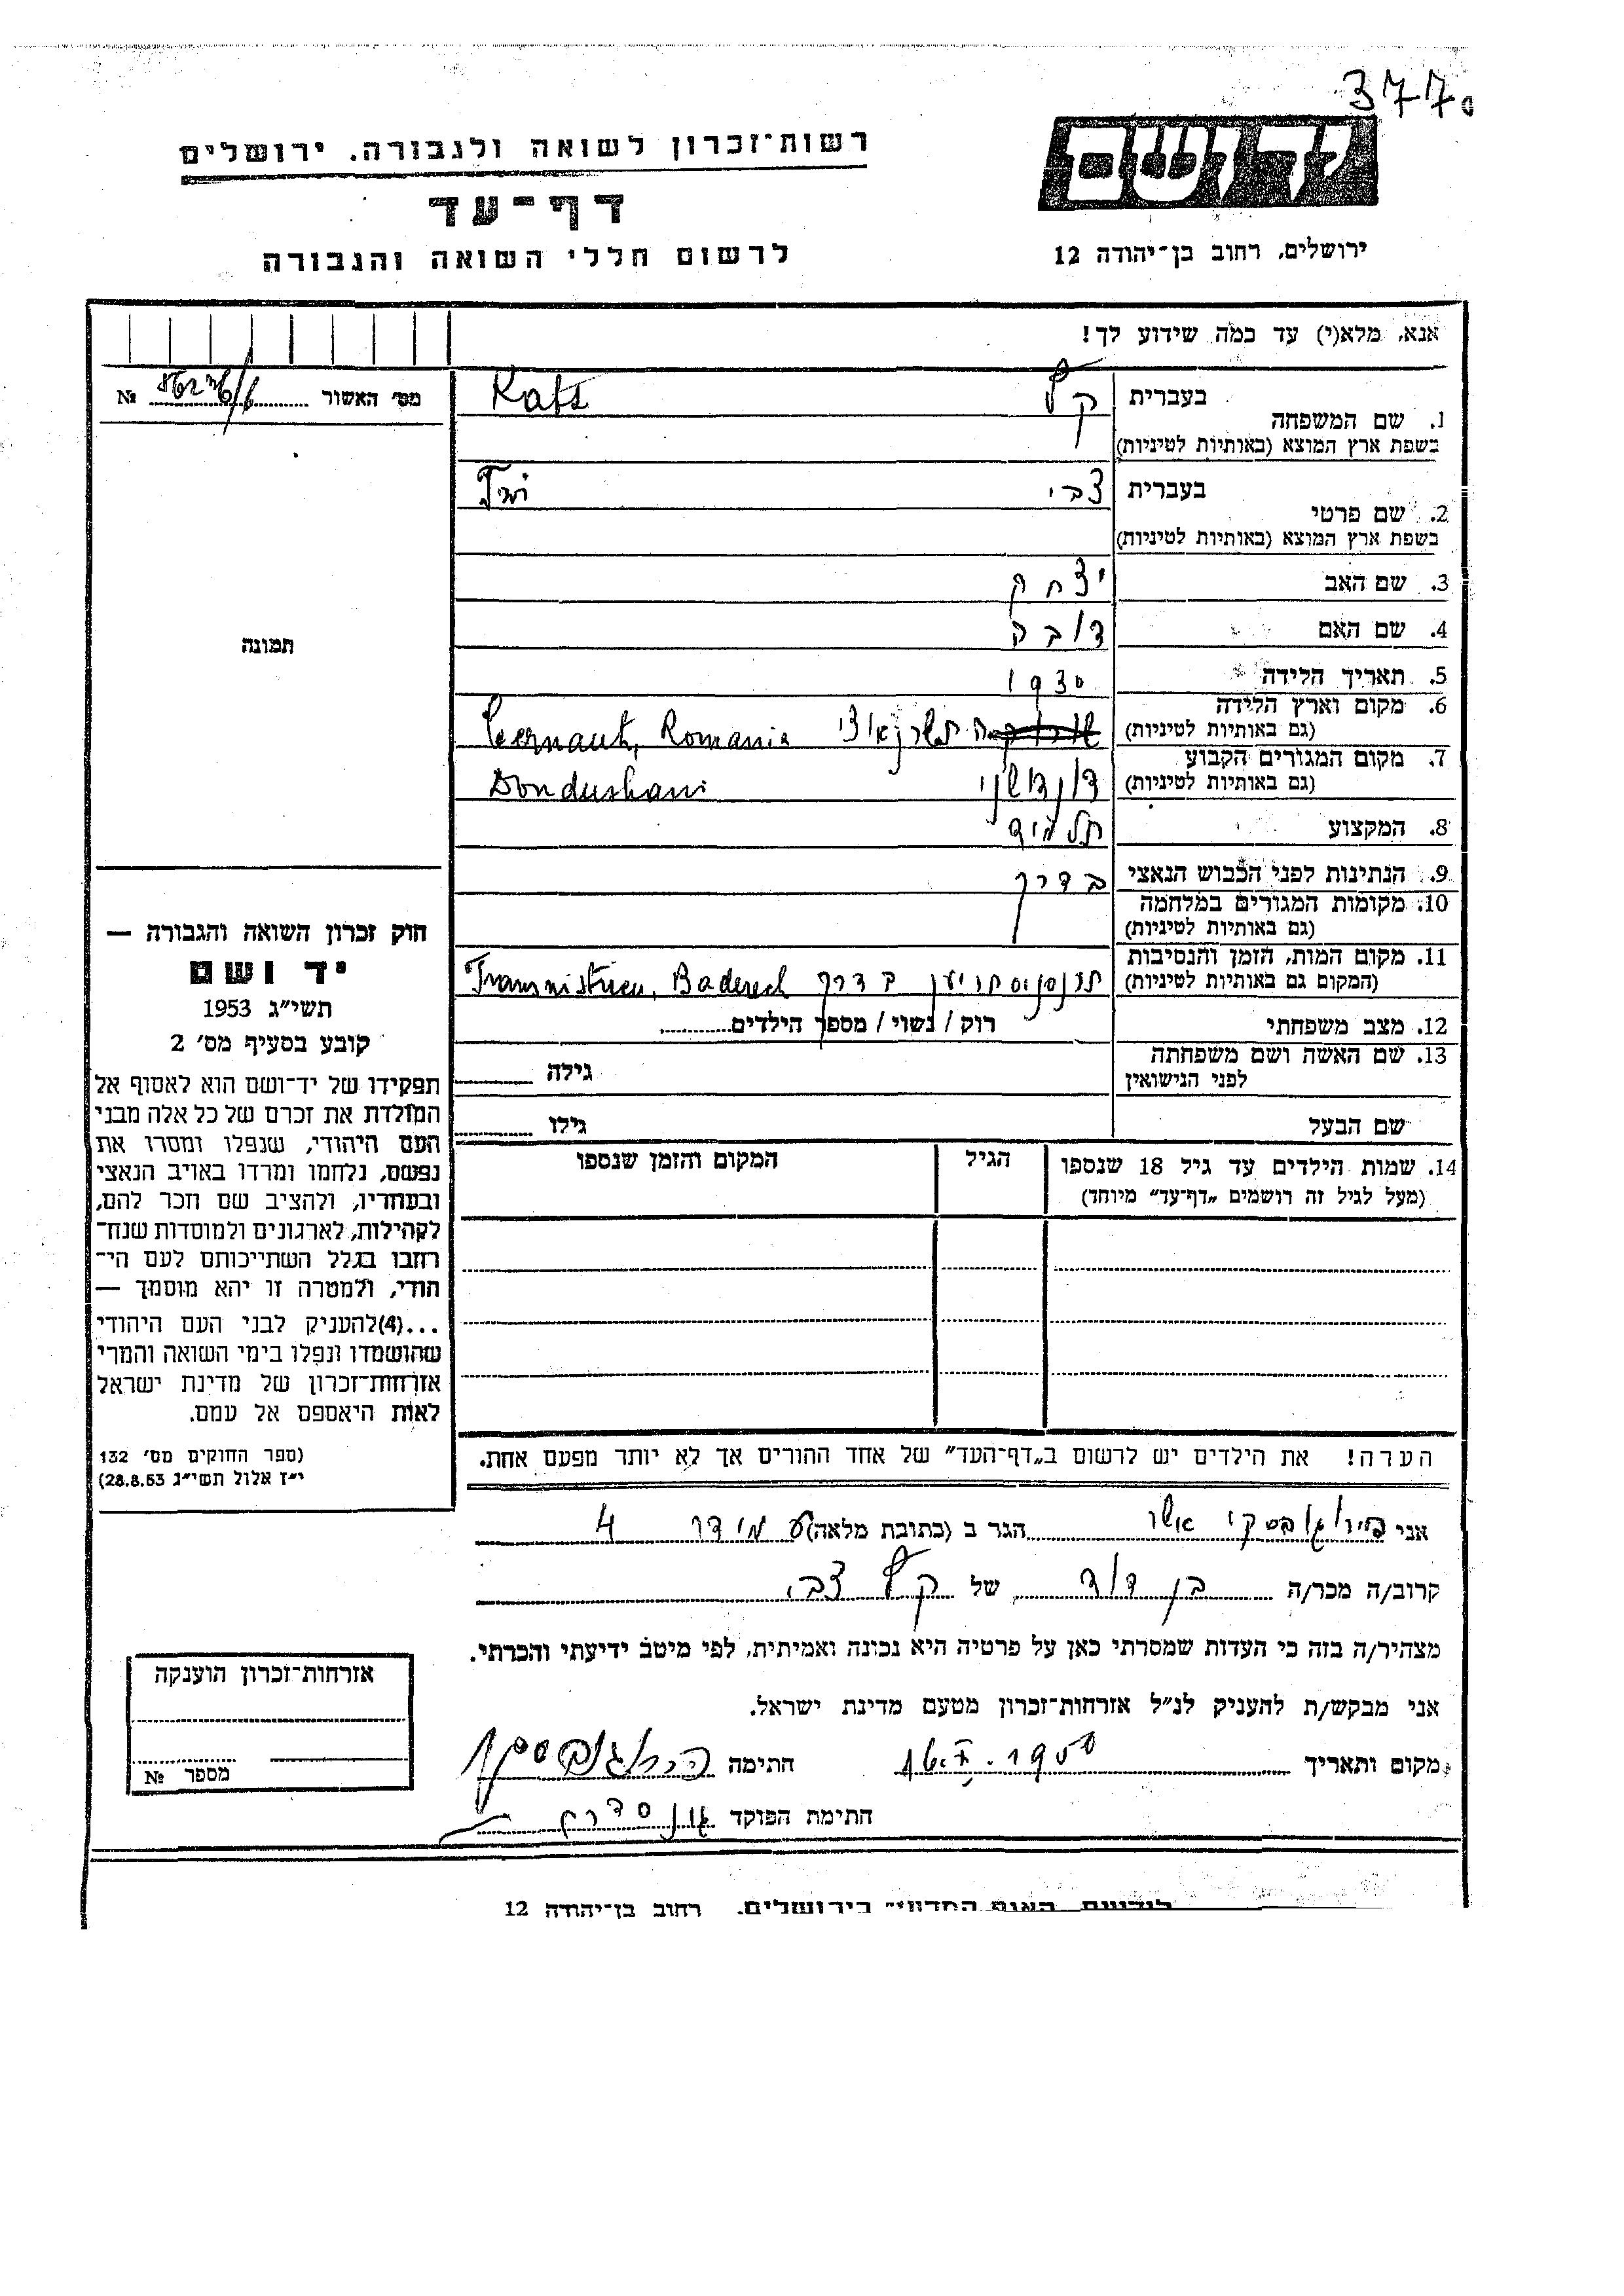 3770
יד ושם
רשות־זכרון לשואה ולגבורה. ירושלים
דף־עד
לרשום חללי השואה והגבורה
ירושלים, רחוב בן־יהודה 12
אנא, מלא(י) עד כמה שידוע לך!
מס׳ האשור №
תמונה
1. שם המשפחה בעברית קץ Kats
בשפת ארץ המוצא (באותיות לטיניות)
2. שם פרטי בעברית צבי
בשפת ארץ המוצא (באותיות לטיניות)
3. שם האב יצחק
4. שם האם
5. תאריך הלידה 1930
6. מקום וארץ הלידה Cernauti, Romania
(גם באותיות לטיניות)
7. מקום המגורים הקבוע דונדושני Dondushani
(גם באותיות לטיניות)
8. המקצוע תלמיד
9. הנתינות לפני הכבוש הנאצי בדרך
10. מקומות המגורים במלחמה
(גם באותיות לטיניות)
11. מקום המות, הזמן והנסיבות בדרך Baderech
(המקום גם באותיות לטיניות)
12. מצב משפחתי רוק / נשוי / מספר הילדים
13. שם האשה ושם משפחתה לפני הנישואין גילה
שם הבעל גילו
14. שמות הילדים עד גיל 18 שנספו הגיל המקום והזמן שנספו
(מעל לגיל זה רושמים „דף־עד״ מיוחד)
הערה! את הילדים יש לרשום ב„דף־העד״ של אחד ההורים אך לא יותר מפעם אחת.
חוק זכרון השואה והגבורה —
יד ושם
תשי״ג 1953
קובע בסעיף מס׳ 2
תפקידו של יד־ושם הוא לאסוף אל
המולדת את זכרם של כל אלה מבני
העם היהודי, שנפלו ומסרו את
נפשם, נלחמו ומרדו באויב הנאצי
ובעוזריו, ולהציב שם וזכר להם,
לקהילות, לארגונים ולמוסדות שנח־
רחבו בגלל השתייכותם לעם הי־
הודי, ולמטרה זו יהא מוסמך —
...(4)להעניק לבני העם היהודי
שהושמדו ונפלו בימי השואה והמרי
אזרחות־זכרון של מדינת ישראל
לאות היאספם אל עמם.
(ספר החוקים מס׳ 132
י״ז אלול תשי״ג 28.8.53)
אני פירוגובסקי אשר הגר ב (כתובת מלאה) 4
קרוב/ה מכר/ה בן דוד של קץ צבי
מצהיר/ה בזה כי העדות שמסרתי כאן על פרטיה היא נכונה ואמיתית, לפי מיטב ידיעתי והכרתי.
אני מבקש/ת להעניק לנ״ל אזרחות־זכרון מטעם מדינת ישראל.
מקום ותאריך חתימה
חתימת הפוקד
אזרחות־זכרון הוענקה
מספר №
רחוב בן־יהודה 12